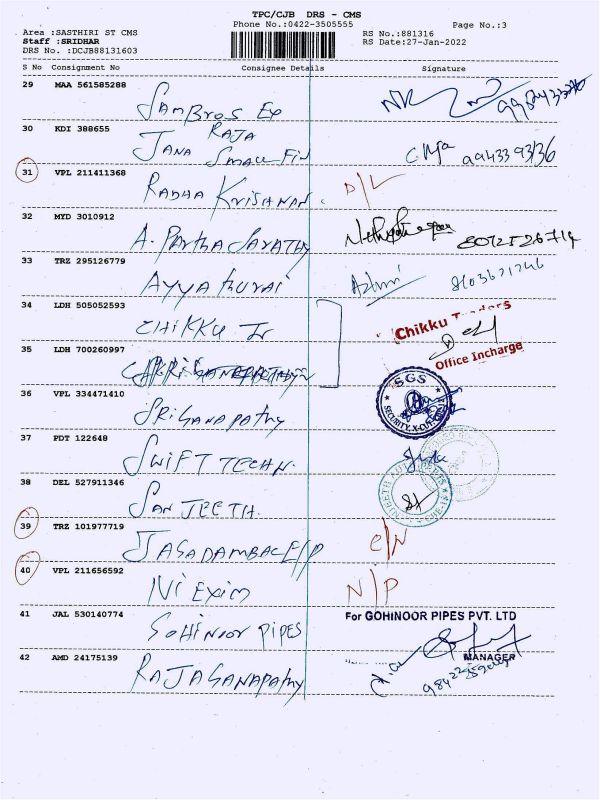 TPC/CJB DRS - CMS
Phone No.:0422-3505555
Page No.:3
Area :SASTHIRI ST CMS
RS No.:881316
Staff :SRIDHAR
RS Date:27-Jan-2022
DRS No. :DCJB88131603
S No Consignment No Consignee Details Signature
29 MAA 561585288
SamBros Ex
30 KDI 388655
RAJA
JANA Small Fin
9943393136
31 VPL 211411368
RADHA KRISHNAN. D/L
32 MYD 3010912
A. PARTHASARATHY
33 TRZ 295126779
AYYADURAI
34 LDH 505052593
CHIKKU Tr
Chikku Traders
Office Incharge
35 LDH 700260997
SGS
SECURITY
36 VPL 334471410
SRIGANAPATHY
37 PDT 122648
SWIFT TECHN.
38 DEL 527911346
SANJEETH.
39 TRZ 101977719
C/N
40 VPL 211656592
NI EXIM N/P
41 JAL 530140774
GOHINOOR PIPES
For GOHINOOR PIPES PVT. LTD
MANAGER
42 AMD 24175139
RAJAGANAPATHY